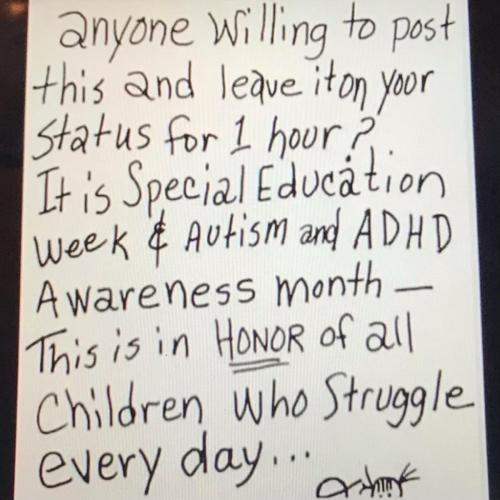 anyone willing to post
this and leave it on yoor
Status for 1 hour?
It is Special Education
Week & Autism and ADHD
Awareness month —
This is in HONOR of all
Children who Struggle
every day...